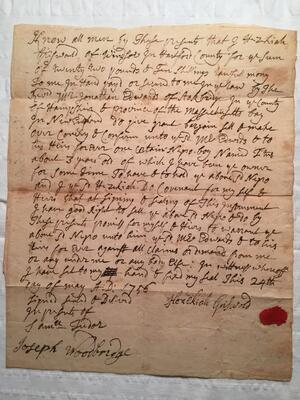 Know all men by These presents that I Hezekiah
Griswold of Windsor in Hartford County for ye sum
of Twenty two Pounds & Ten Shillings Lawfull mony
to me in Hand payd or secured to me in ye Law By The
Revd Mr Jonathan Edwards of Stockbridge In ye County
of Hampshire & province of the Massachusetts Bay
In New England Do give grant bargain sell & make
over Convey & Confirm unto ye sd Mr Edwards & to
his Heirs for Ever one certain Negro boy Named Titus
about 3 years old of which I have been ye owner
for some time To have & to hold ye above sd Negro
and I ye sd Hezekiah Do Covenant for my self &
Heirs that at signing & sealing of This Instrument
I have good Right to sell ye above sd Negro & do By
These presents promise for my self & Heirs to warrant ye
above sd Negro unto him ye sd Mr Edwards & to his
Heirs for Ever against all claims & demands from me
or any under me or any body Else In witness whereof
I have set to my hand & fixed my seal This 24th
day of may A.D. 1756
Signed seald & Delivrd
In presents of
Hezekiah Griswold
Joseph Woodbridge